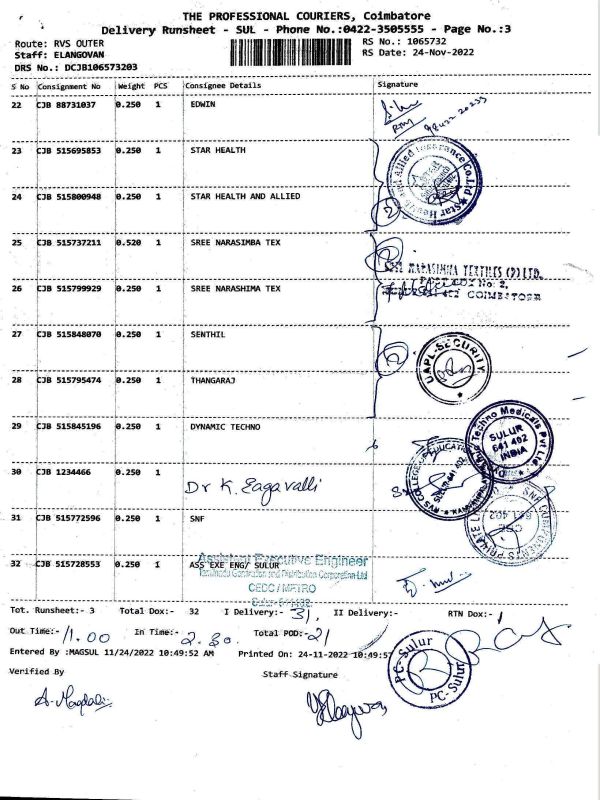 THE PROFESSIONAL COURIERS, Coimbatore
Delivery Runsheet - SUL - Phone No.:0422-3505555 - Page No.:3
Route: RVS OUTER RS No.: 1065732
Staff: ELANGOVAN RS Date: 24-Nov-2022
DRS No.: DCJB106573203
S No Consignment No Weight PCS Consignee Details Signature
22 CJB 88731037 0.250 1 EDWIN
23 CJB 515695853 0.250 1 STAR HEALTH
Star Health and Allied Insurance Co.Ltd
24 CJB 515800948 0.250 1 STAR HEALTH AND ALLIED
25 CJB 515737211 0.520 1 SREE NARASIMBA TEX
NARASIMHA TEXTILES (P) LTD.
26 CJB 515799929 0.250 1 SREE NARASHIMA TEX
COIMBATORE
27 CJB 515848070 0.250 1 SENTHIL
UAPL-SECURITY
28 CJB 515795474 0.250 1 THANGARAJ
29 CJB 515845196 0.250 1 DYNAMIC TECHNO
Techno Medicals Pvt Ltd
SULUR
641 402
INDIA
30 CJB 1234466 0.250 1 Dr K. Eagavalli
RVS COLLEGE OF EDUCATION
SULUR-641 402
31 CJB 515772596 0.250 1 SNF
32 CJB 515728553 0.250 1 ASS EXE ENG/ SULUR
Assistant Executive Engineer
Tamilnadu Generation and Distribution Corporation Ltd
CEDC / METRO
Tot. Runsheet:- 3 Total Dox:- 32 I Delivery:- 31, II Delivery:- RTN Dox:- 1
Out Time:- 11.00 In Time:- 2.30 Total POD:- 21
Entered By :MAGSUL 11/24/2022 10:49:52 AM Printed On: 24-11-2022 10:49:57
PC-Sulur
PC-Sulur
Verified By Staff Signature